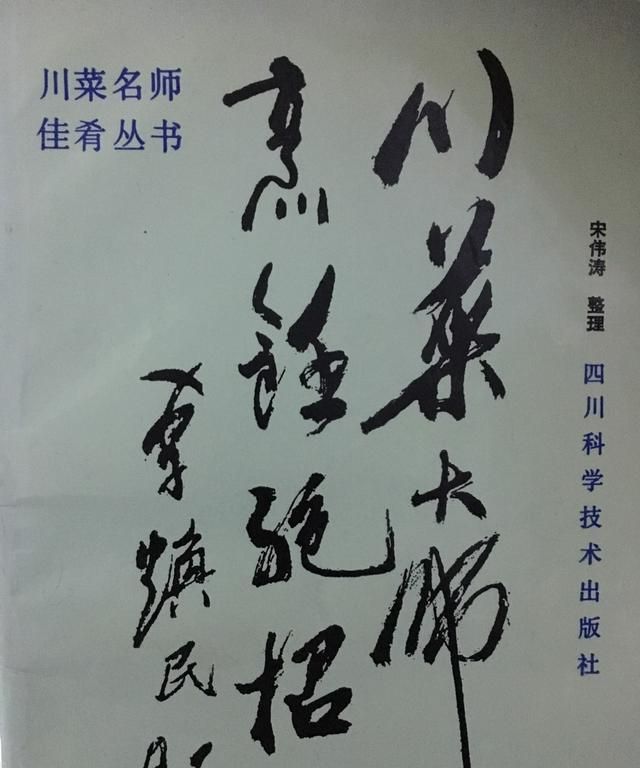 川菜名师
佳肴丛书
川菜大师
烹饪绝招
宋伟涛 整理
四川科学技术出版社